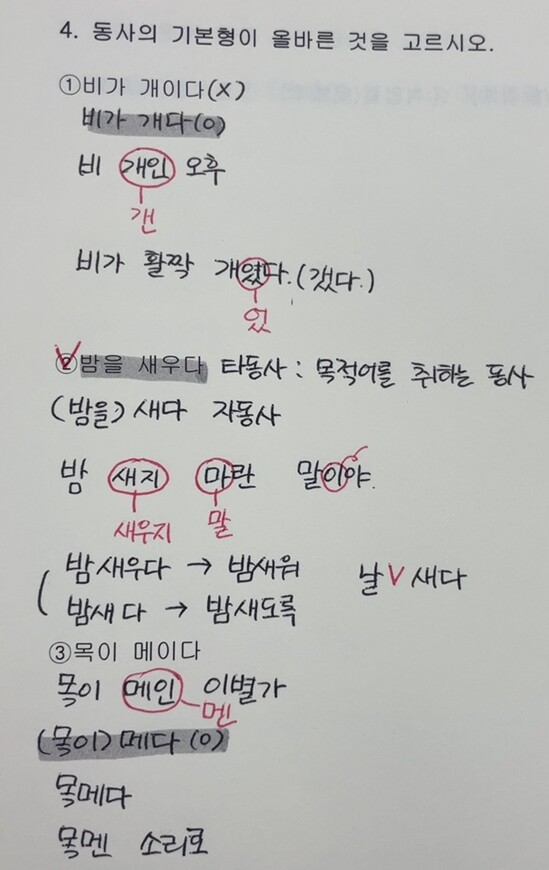 4. 동사의 기본형이 올바른 것을 고르시오.
①비가 개이다(X)
비가 개다(O)
비 개인 오후
갠
비가 활짝 개였다.(갰다.)
었
②밤을 새우다 타동사 : 목적어를 취하는 동사
(밤을) 새다 자동사
밤 새지 마란 말이야.
새우지 말
밤새우다 → 밤새워 날 V 새다
밤새다 → 밤새도록
③목이 메이다
목이 메인 이별가
멘
(목이) 메다 (O)
목메다
목멘 소리로